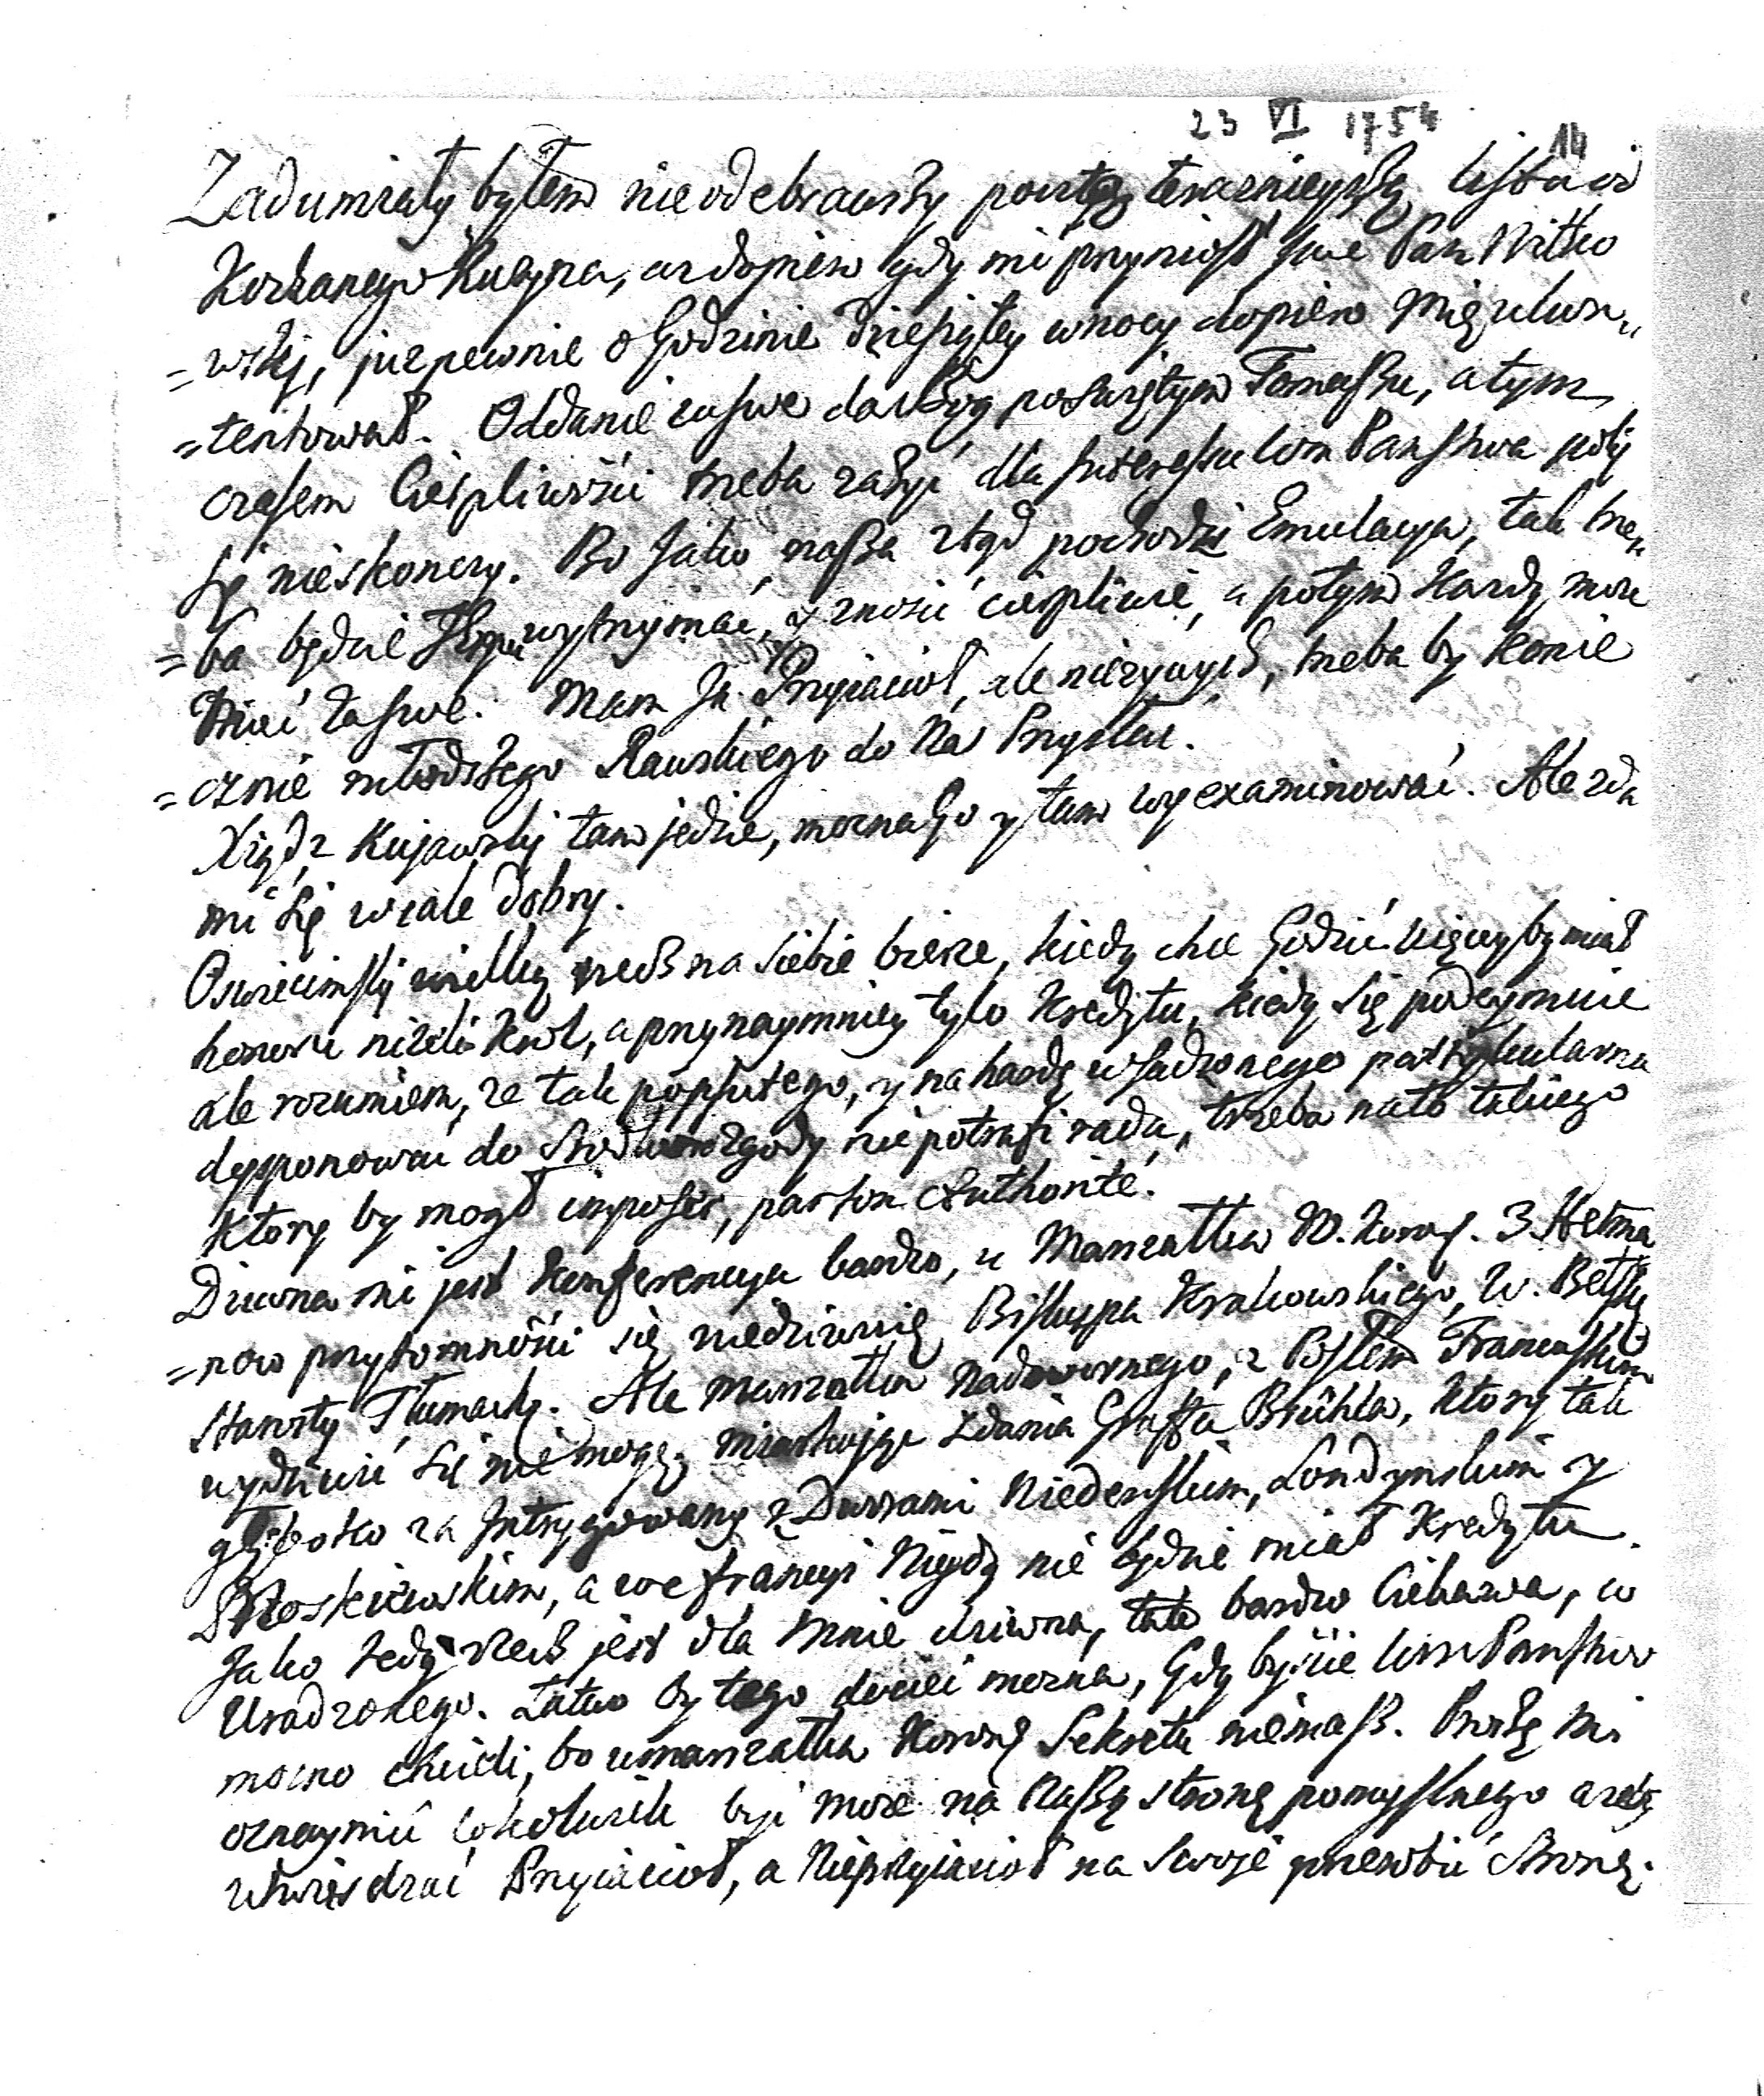 23 VI 1754
14
Zadumiały byłem nie odebrawszy pocztą teraznieyszą listu od
Kochanego Kuzyna, asz dopiero gdy mi przyniosł Pan Witko
=wskj, już pewnie o Godzinie dziesiątey w nocy dopiero mię ukon„
=tentował. Oddanie łaswe da Bóg po Swiętym Tomaszu, a tym
czasem Cierpliwości trzeba zażyć dla Interessu Wm Państwa poki
się nieskonczy. Bo jako nasza ztąd pochodzi Emulacya, tak trze„
=ba będzie wytrzymać, y znosić cierpliwie, a potym każdy może
mieć łaswe. Mam Ja Przyiacioł, ale nieżywych, trzeba by konie
=cznie młodszego Rawskiego do Na Przysłać.
Xiądz Kujawskj tam jedzie, można Go y tam wyexaminować. Ale zda
mi się wcale dobry.
Oswiecimskj wielką rzecz na siebie bierze, kiedy chce Godzić więcey by miał
honoru niżeli Krol, a przynaymniey tylo Kredytu, kiedy się podeymuie
ale rozumiem, że tak popsutego, y na hardą wsadzonego partykularna
dysponować do zgody nie potrafi rada, trzeba na to takiego
ktory by mogł imposer, par son Authorité.
Dziwna mi jest Konferencya bardzo, u Marszałka W. Koron. 3 Hetma
=now przytomności się niedziwuię, Biskupa Krakowskiego, W. Bełskj
Starosty Tłumacki. Ale Marszałka Nadwornego, z Posłem Francuskim
wydziwić się nie mogę, miarkując zdania Graffa Brühla, ktory tak
głęboko zaIntrygowany z Dworami Wiedenskim, Londynskim y
Moskiewskim, a we francyi Nigdy nie będzie miał Kredytu.
Jako tedy rzecz jest dla mnie dziwna, tak bardzo Ciekawa, co
Uradzonego. Łatwo by tego dociec można, Gdy byście Wm Państwo
mocno chcieli, bo u Marszałka Koron Sekretu niemasz. Proszę mi
oznaymić cokolwiek być może na Naszą stronę pomyślnego ażeby
utwierdzać Przyiacioł, a Nieprzyiacioł na swoję przerobić stronę.